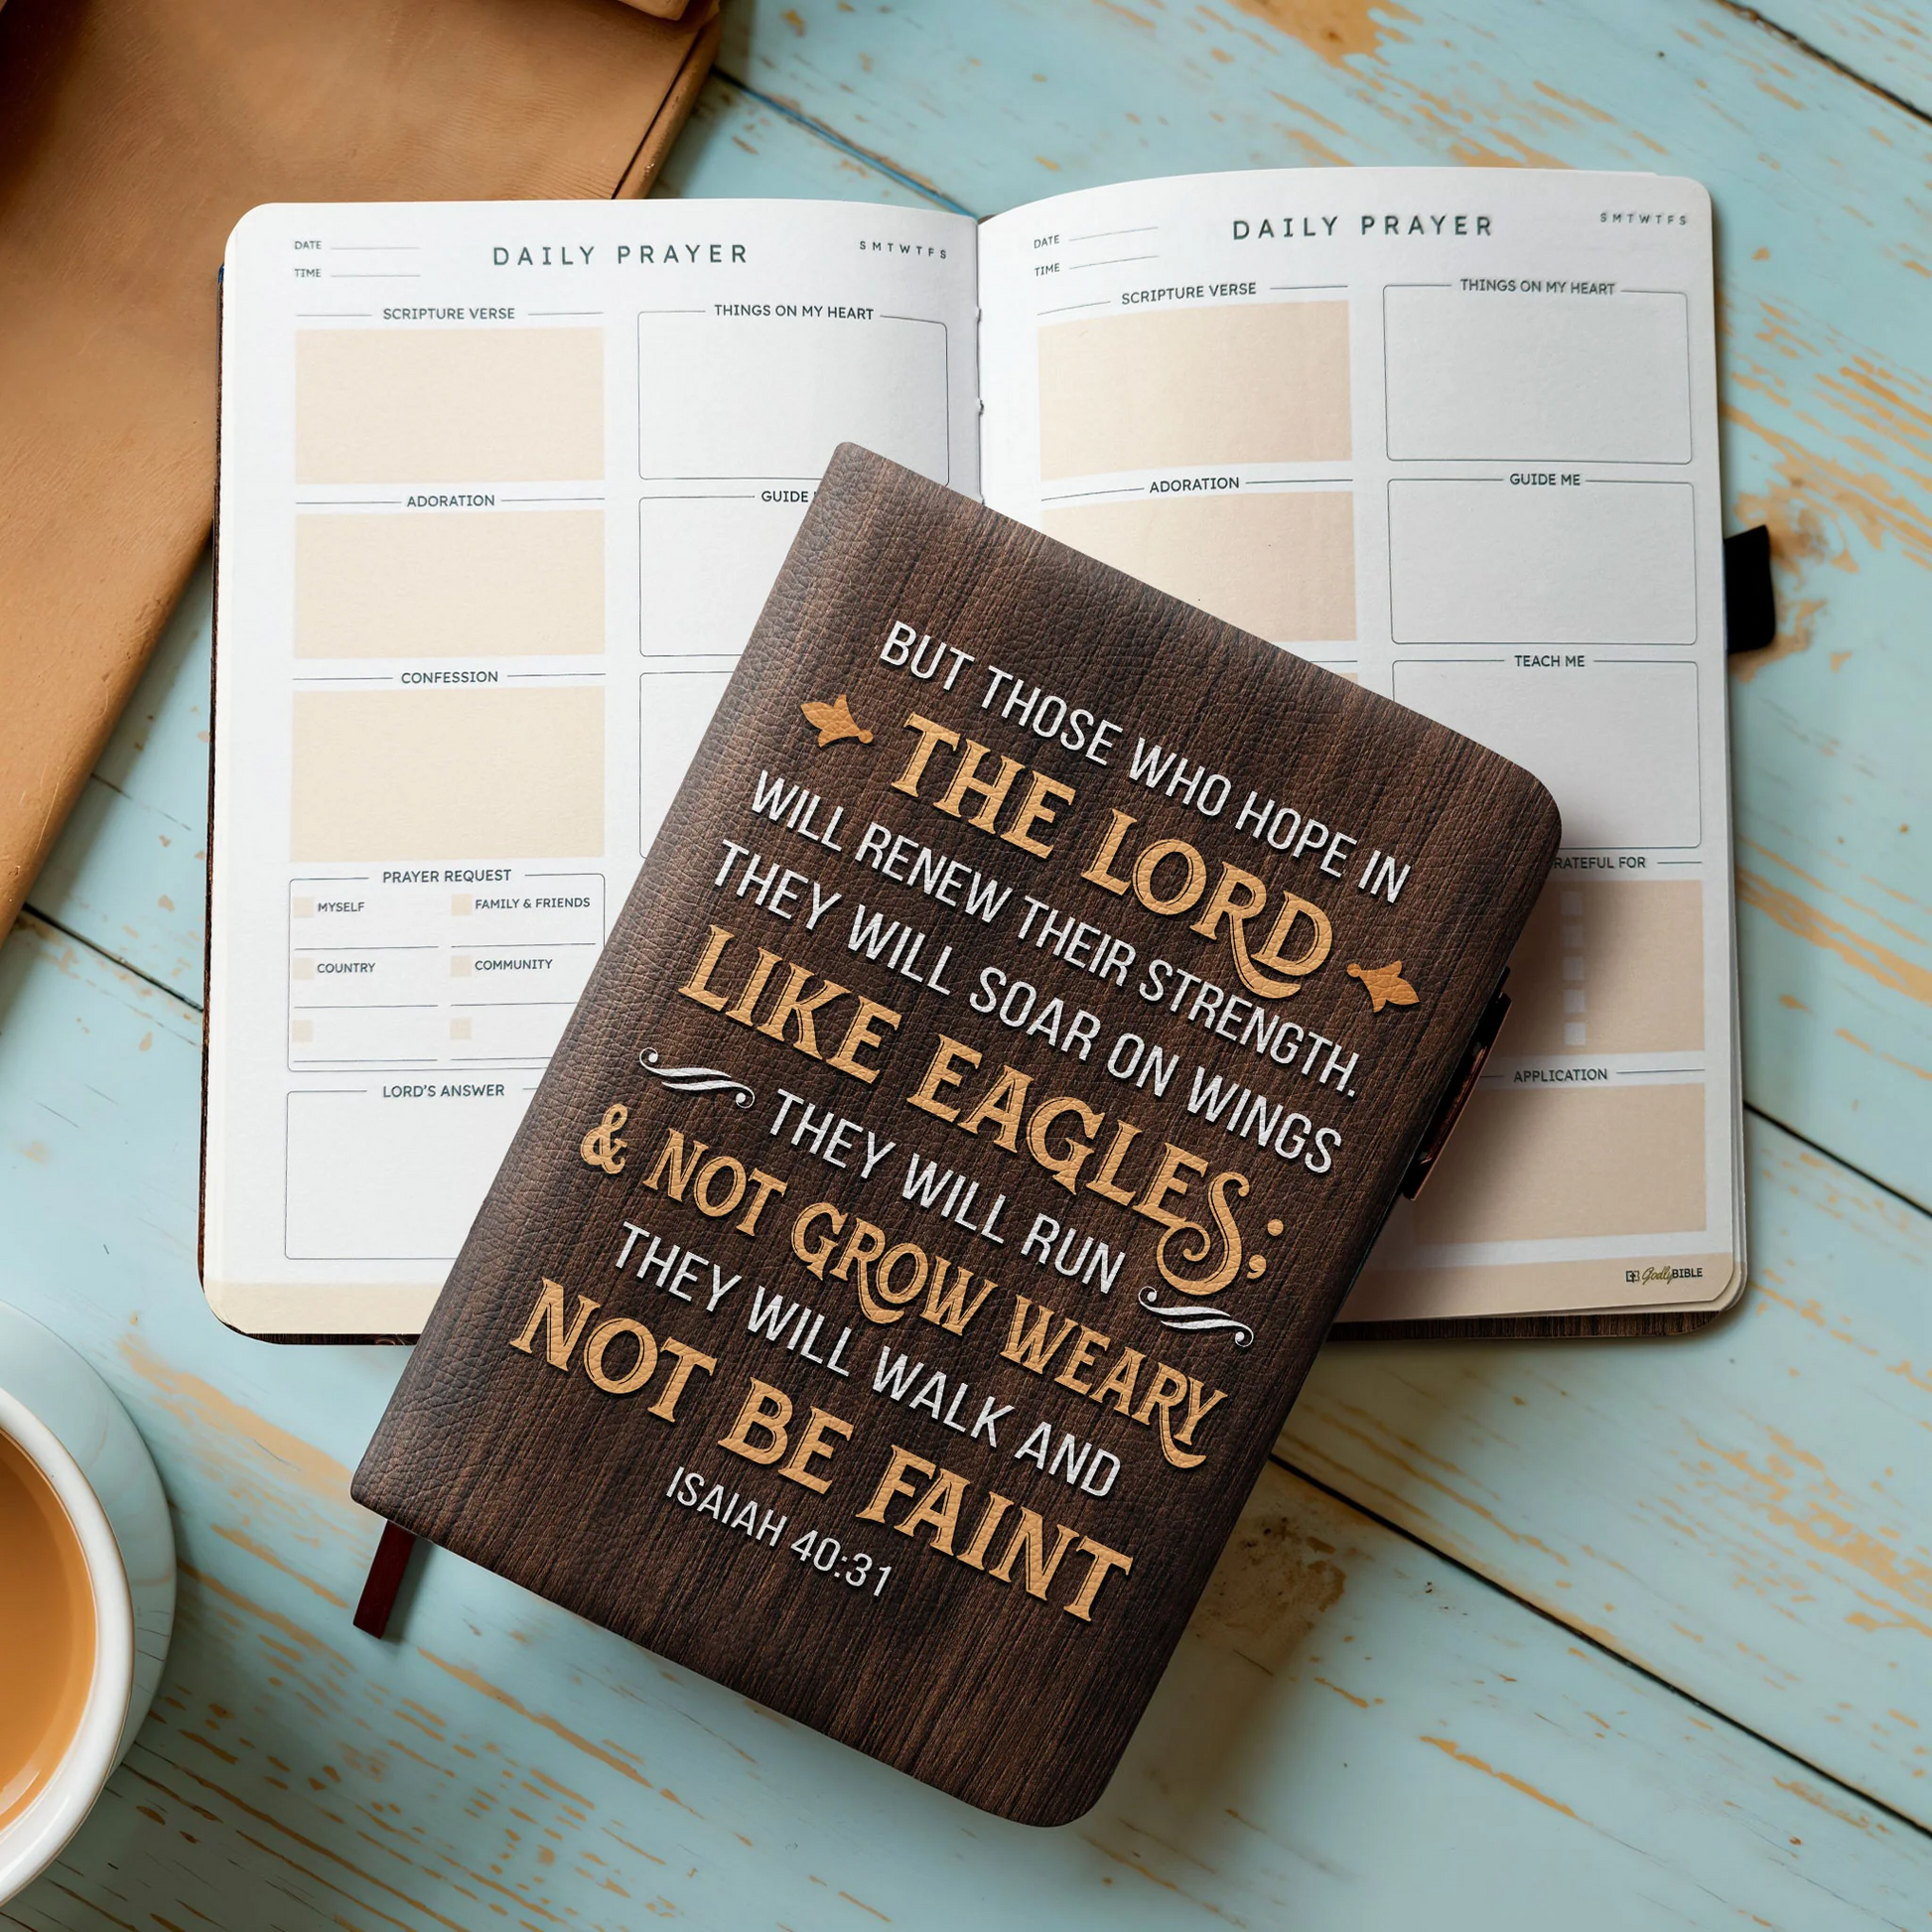 DATE
TIME
DAILY PRAYER
S M T W T F S
SCRIPTURE VERSE
THINGS ON MY HEART
ADORATION
GUIDE
CONFESSION
PRAYER REQUEST
MYSELF
FAMILY & FRIENDS
COUNTRY
COMMUNITY
LORD'S ANSWER
DATE
TIME
DAILY PRAYER
S M T W T F S
SCRIPTURE VERSE
THINGS ON MY HEART
ADORATION
GUIDE ME
TEACH ME
RATEFUL FOR
APPLICATION
GodlyBIBLE
BUT THOSE WHO HOPE IN
THE LORD
WILL RENEW THEIR STRENGTH.
THEY WILL SOAR ON WINGS
LIKE EAGLES;
THEY WILL RUN
& NOT GROW WEARY
THEY WILL WALK AND
NOT BE FAINT
ISAIAH 40:31